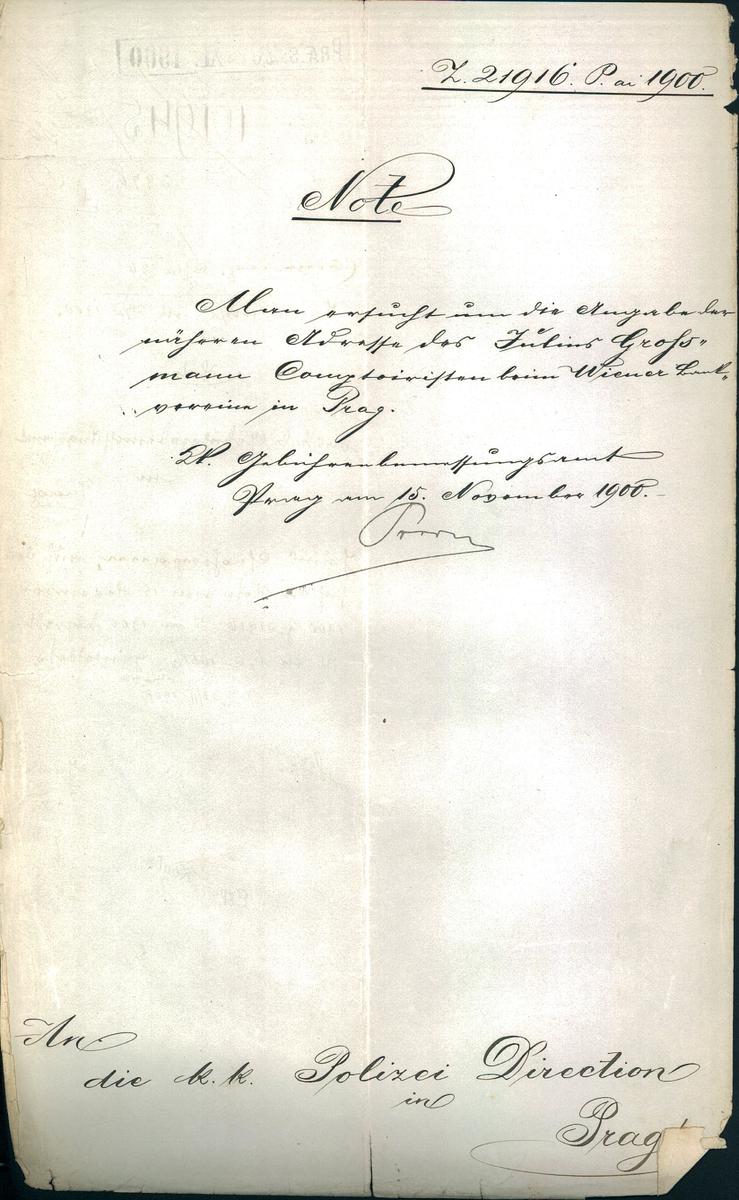 Z. 21916. P. ai 1900.
Note
Man ersucht um die Angabe der
näheren Adresse des Julius Groß-
mann Comptoiristen beim Wiener Bank-
vereine in Prag.
k. Gebührenbemessungsamt
Prag am 15. November 1900.
An
die k. k. Polizei Direction
in
Prag